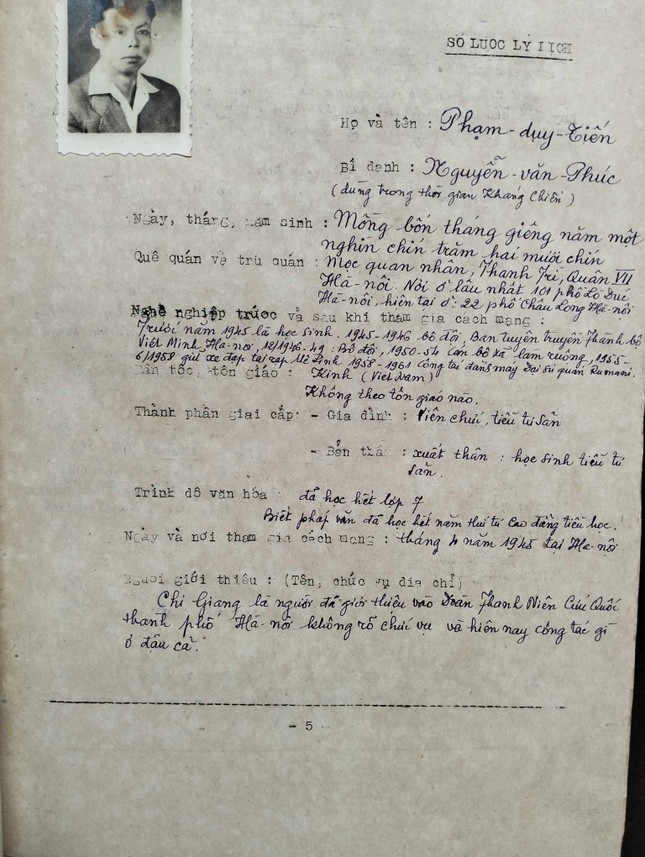 SƠ LƯỢC LÝ LỊCH
Họ và tên : Phạm-duy-Tiến
Bí danh : Nguyễn-văn-Phúc
(dùng trong thời gian Kháng Chiến)
Ngày, tháng, năm sinh : Mồng bốn tháng giêng năm một
nghìn chín trăm hai mươi chín
Quê quán và trú quán : Mọc quan nhân, Thanh Trì, Quận VII
Hà-nội. Nơi ở lâu nhất 101 phố Lò Đúc
Hà-nội, hiện tại ở: 22 phố Châu Long Hà-nội
Nghề nghiệp trước và sau khi tham gia cách mạng :
Trước năm 1945 là học sinh. 1945-1946 bộ đội, Ban tuyên truyền Thành bộ
Việt Minh Hà-nội, 12/1946-49 : Bộ đội, 1950-54 cán bộ xã làm ruộng, 1955-
6/1958 giữ xe đạp tại rạp Mê Linh 1958-1961 công tác đánh máy Đại sứ quán Rumani.
Dân tộc, tôn giáo : Kinh (Việt Nam)
Không theo tôn giáo nào.
Thành phần giai cấp: - Gia đình : Viên chức, tiểu tư sản
- Bản thân : xuất thân : học sinh tiểu tư
sản.
Trình độ văn hóa : đã học hết lớp 7
Biết pháp văn đã học hết năm thứ tư Cao đẳng tiểu học.
Ngày và nơi tham gia cách mạng : tháng 4 năm 1945 tại Hà-nội
Người giới thiệu : (Tên, chức vụ địa chỉ)
Chị Giang là người đã giới thiệu vào Đoàn Thanh Niên Cứu Quốc
thành phố Hà-nội không rõ chức vụ và hiện nay công tác gì
ở đâu cả.
- 5